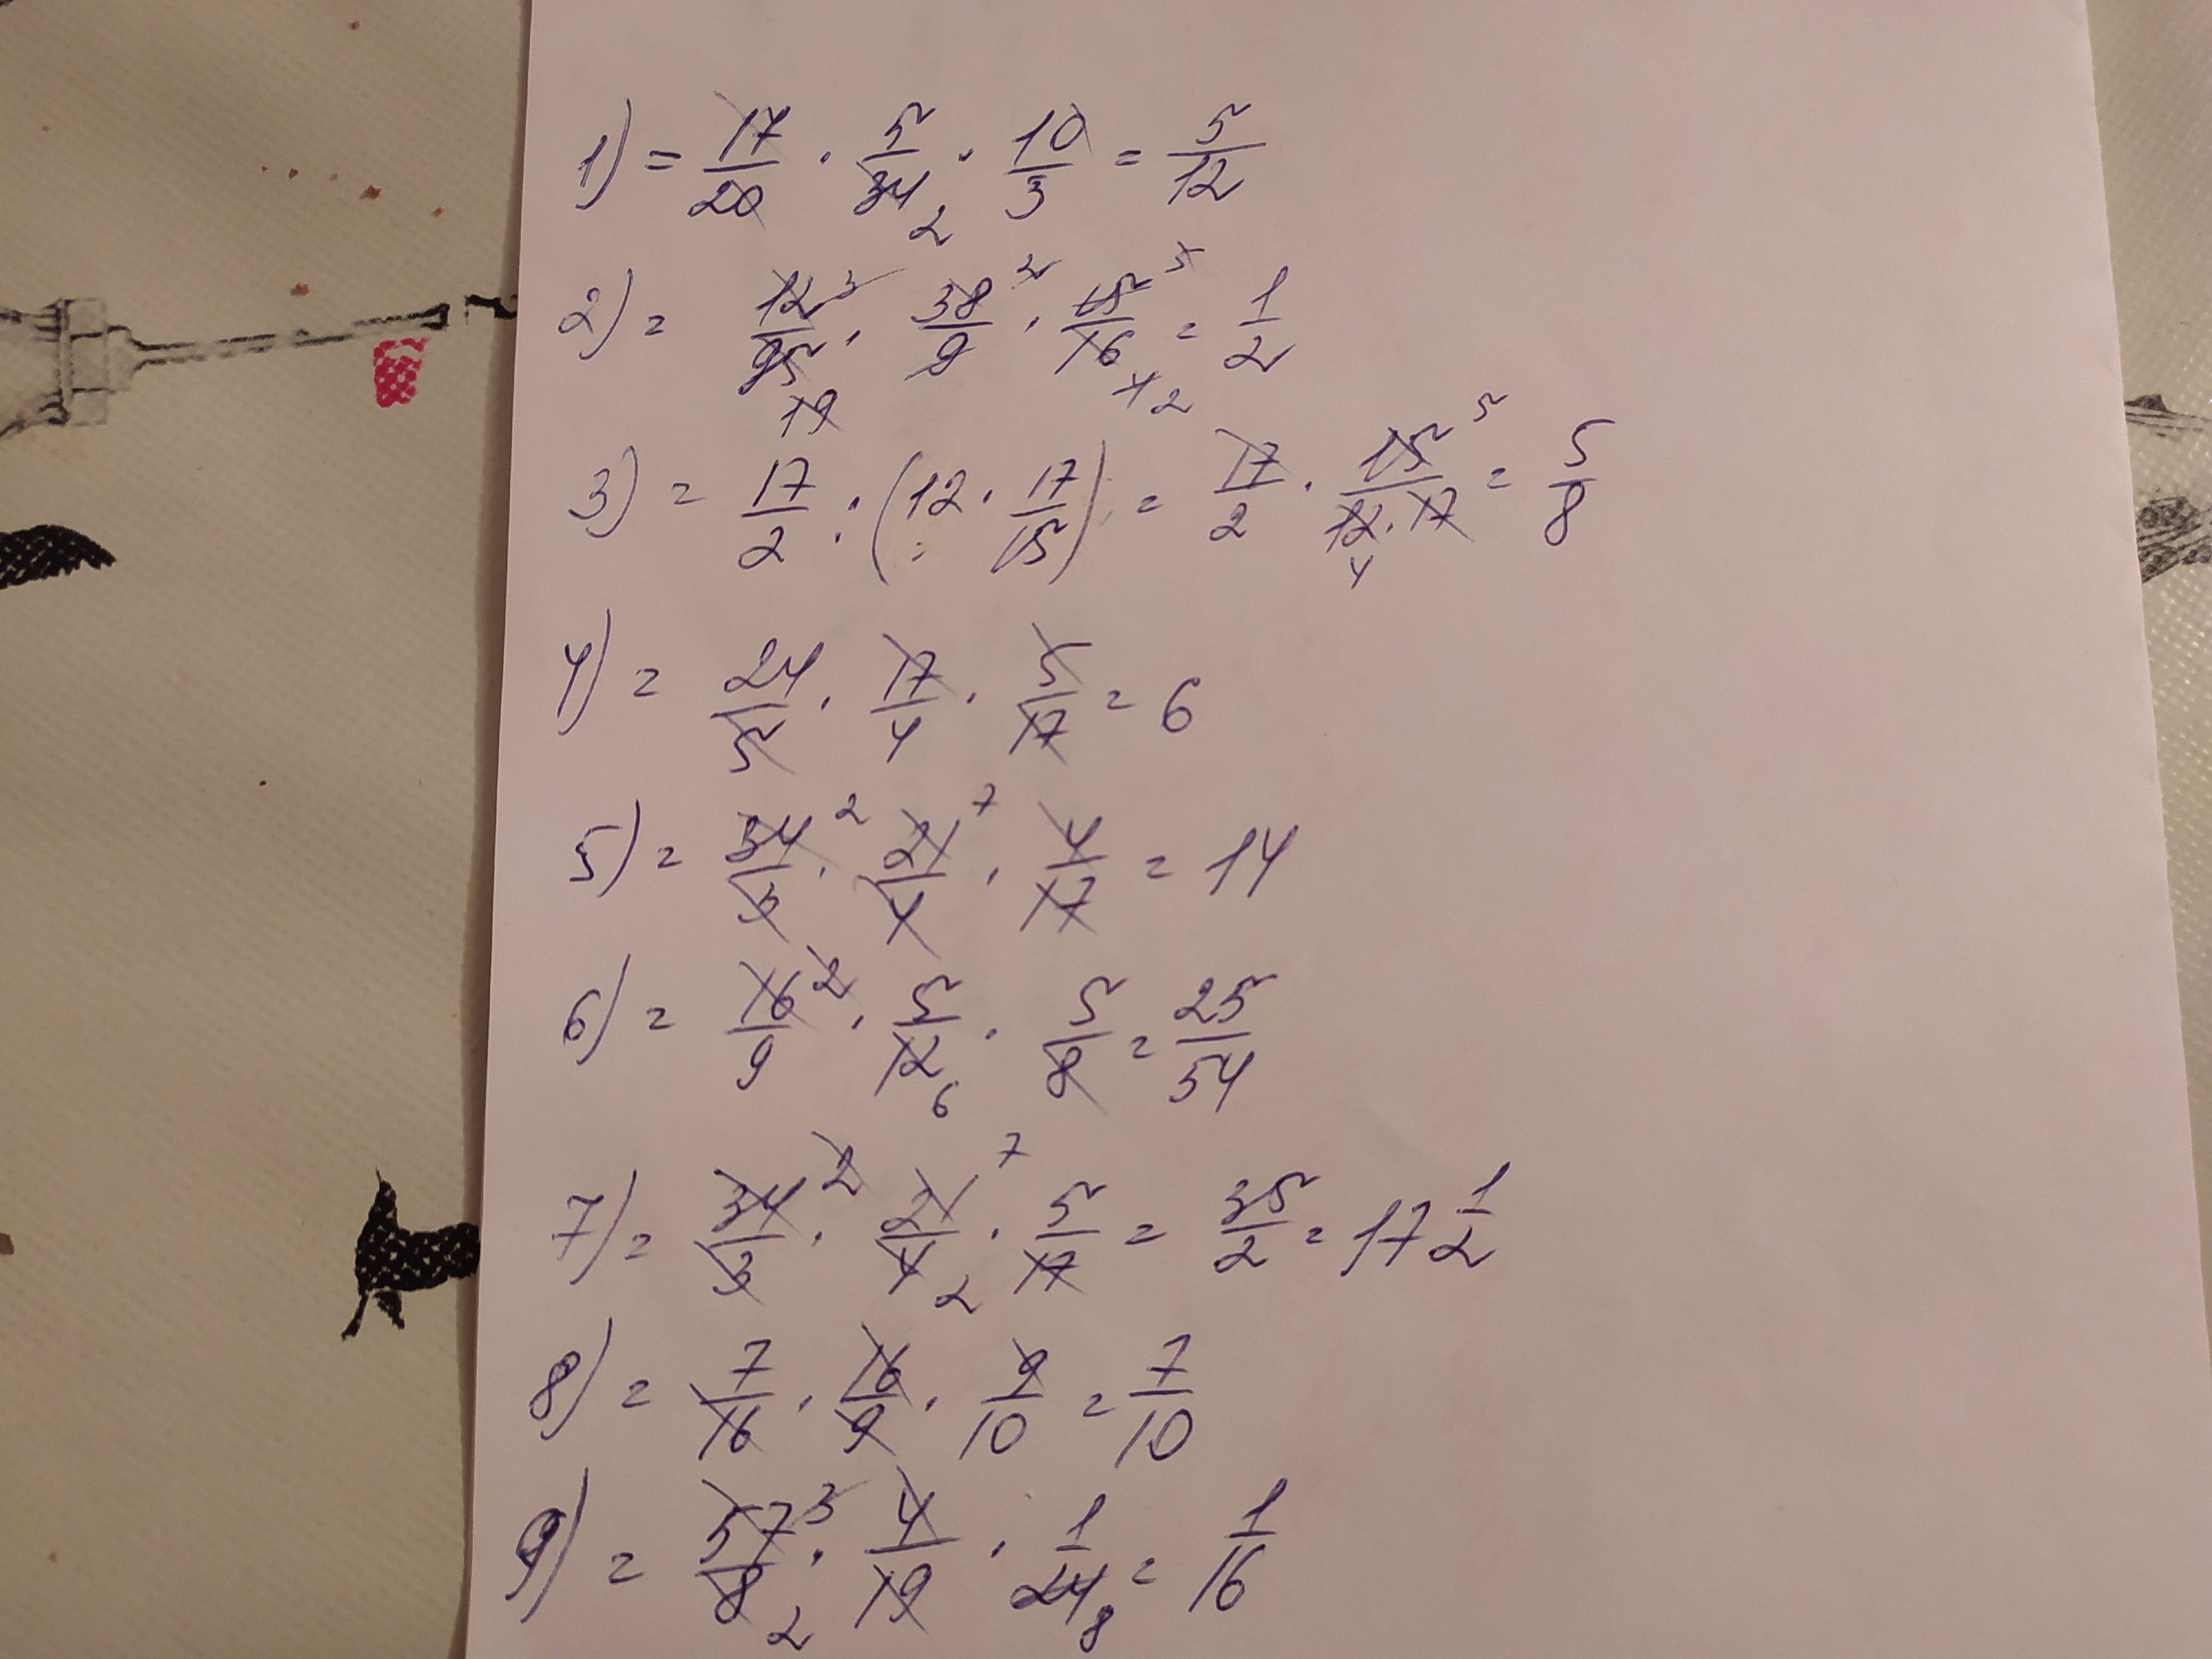 1) = 17/20 · 5/34 2 · 10/3 = 5/12
2) = 12 3/95 19 · 38 2/9 · 15 5/16 4 2 = 1/2
3) = 17/2 : (12 · 17/15) = 17/2 · 15 5/12 · 17 4 = 5/8
4) = 24/5 · 17/4 · 5/17 = 6
5) = 34 2/3 · 21 7/4 · 4/17 = 14
6) = 16 2/9 · 5/12 6 · 5/8 = 25/54
7) = 34 2/3 · 21 7/4 2 · 5/17 = 35/2 = 17 1/2
8) = 7/16 · 16/9 · 9/10 = 7/10
9) = 57 3/8 2 · 4/19 · 1/24 8 = 1/16